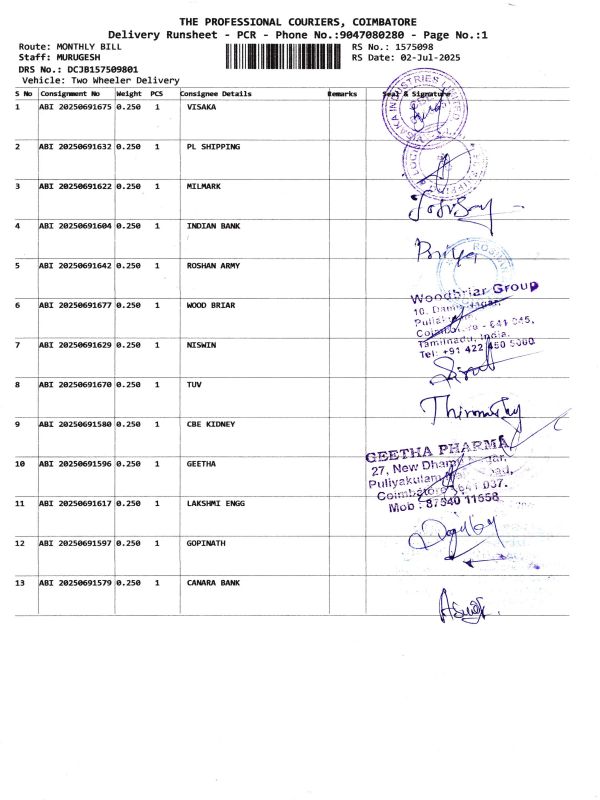 THE PROFESSIONAL COURIERS, COIMBATORE
Delivery Runsheet - PCR - Phone No.:9047080280 - Page No.:1
Route: MONTHLY BILL RS No.: 1575098
Staff: MURUGESH RS Date: 02-Jul-2025
DRS No.: DCJB157509801
Vehicle: Two Wheeler Delivery
S No Consignment No Weight PCS Consignee Details Remarks Seal & Signature
1 ABI 20250691675 0.250 1 VISAKA
2 ABI 20250691632 0.250 1 PL SHIPPING
3 ABI 20250691622 0.250 1 MILMARK
4 ABI 20250691604 0.250 1 INDIAN BANK
Priya
5 ABI 20250691642 0.250 1 ROSHAN ARMY
Woodbriar Group
6 ABI 20250691677 0.250 1 WOOD BRIAR
Coimbatore - 641 045.
Tamilnadu, India.
7 ABI 20250691629 0.250 1 NISWIN
Tel: +91 422 450 5060
8 ABI 20250691670 0.250 1 TUV
9 ABI 20250691580 0.250 1 CBE KIDNEY
GEETHA PHARMA
10 ABI 20250691596 0.250 1 GEETHA
27, New Dhamu Nagar,
Puliyakulam Road,
Coimbatore - 641 037.
11 ABI 20250691617 0.250 1 LAKSHMI ENGG
Mob : 87540 11558
12 ABI 20250691597 0.250 1 GOPINATH
13 ABI 20250691579 0.250 1 CANARA BANK